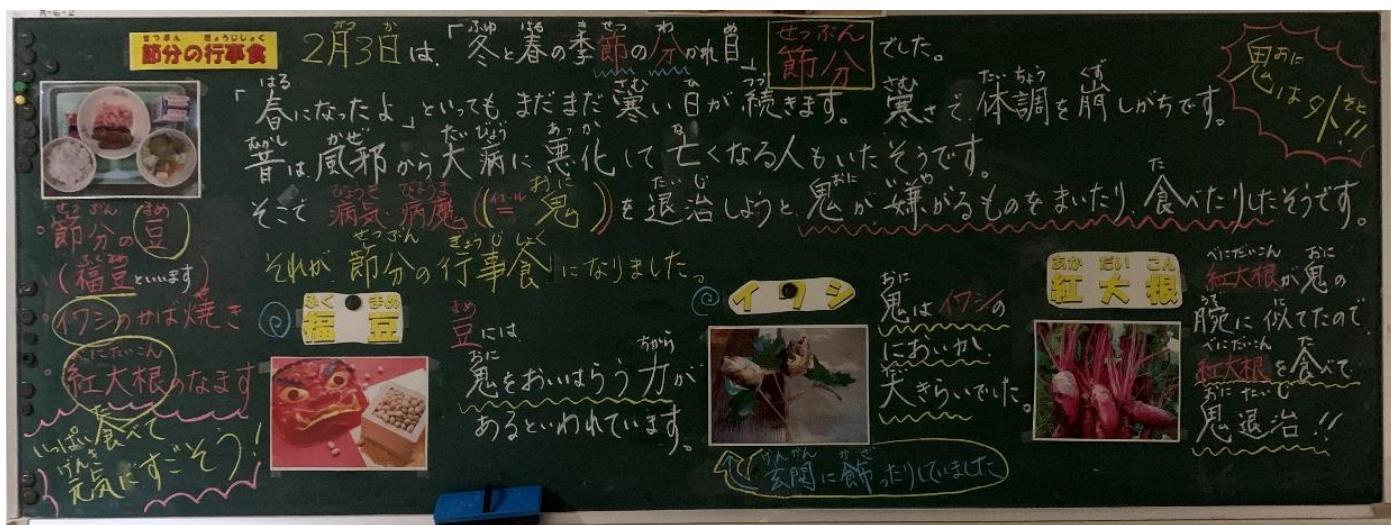 R-6-2
節分の行事食
2月3日は、「冬と春の季節の分かれ目」節分でした。
鬼は外!!
「春になったよ」といっても、まだまだ寒い日が、続きます。寒さで体調を崩しがちです。
昔は風邪から大病に悪化して亡くなる人もいたそうです。
そこで病気、病魔((= 鬼))を退治しようと、鬼が嫌がるものをまいたり、食べたりしたそうです。
それが「節分の行事食」になりました。
・節分の豆
(福豆といいます)
・イワシのかば焼き
・紅大根のなます
いっぱい食べて
元気にすごそう!
福豆
豆には、
鬼をおいはらう力が
あるといわれています。
イワシ
鬼はイワシの
においが、
大きらいでした。
玄関に飾ったりしていました
紅大根
紅大根が鬼の
腕に似てたので、
紅大根を食べて
鬼退治!!